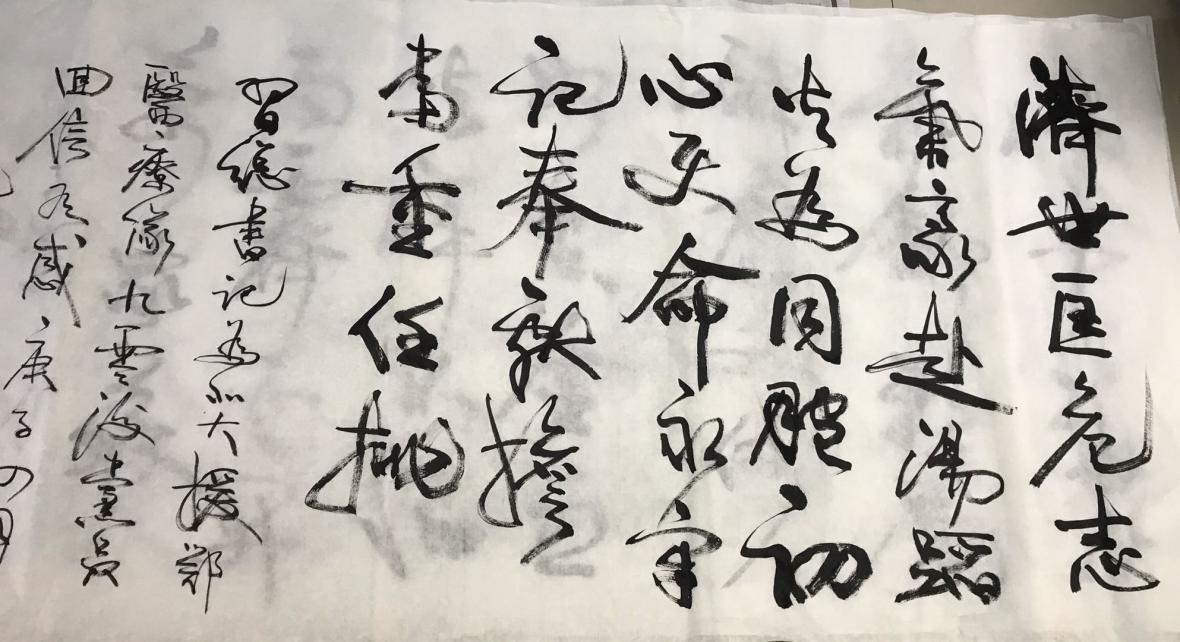 濟世匡危志
氣豪赴湯蹈
火為同胞初
心命永牢
記奉献擔
當重任挑
習總書記為北大援鄂
醫療隊九零後黨員
回信有感庚子四月